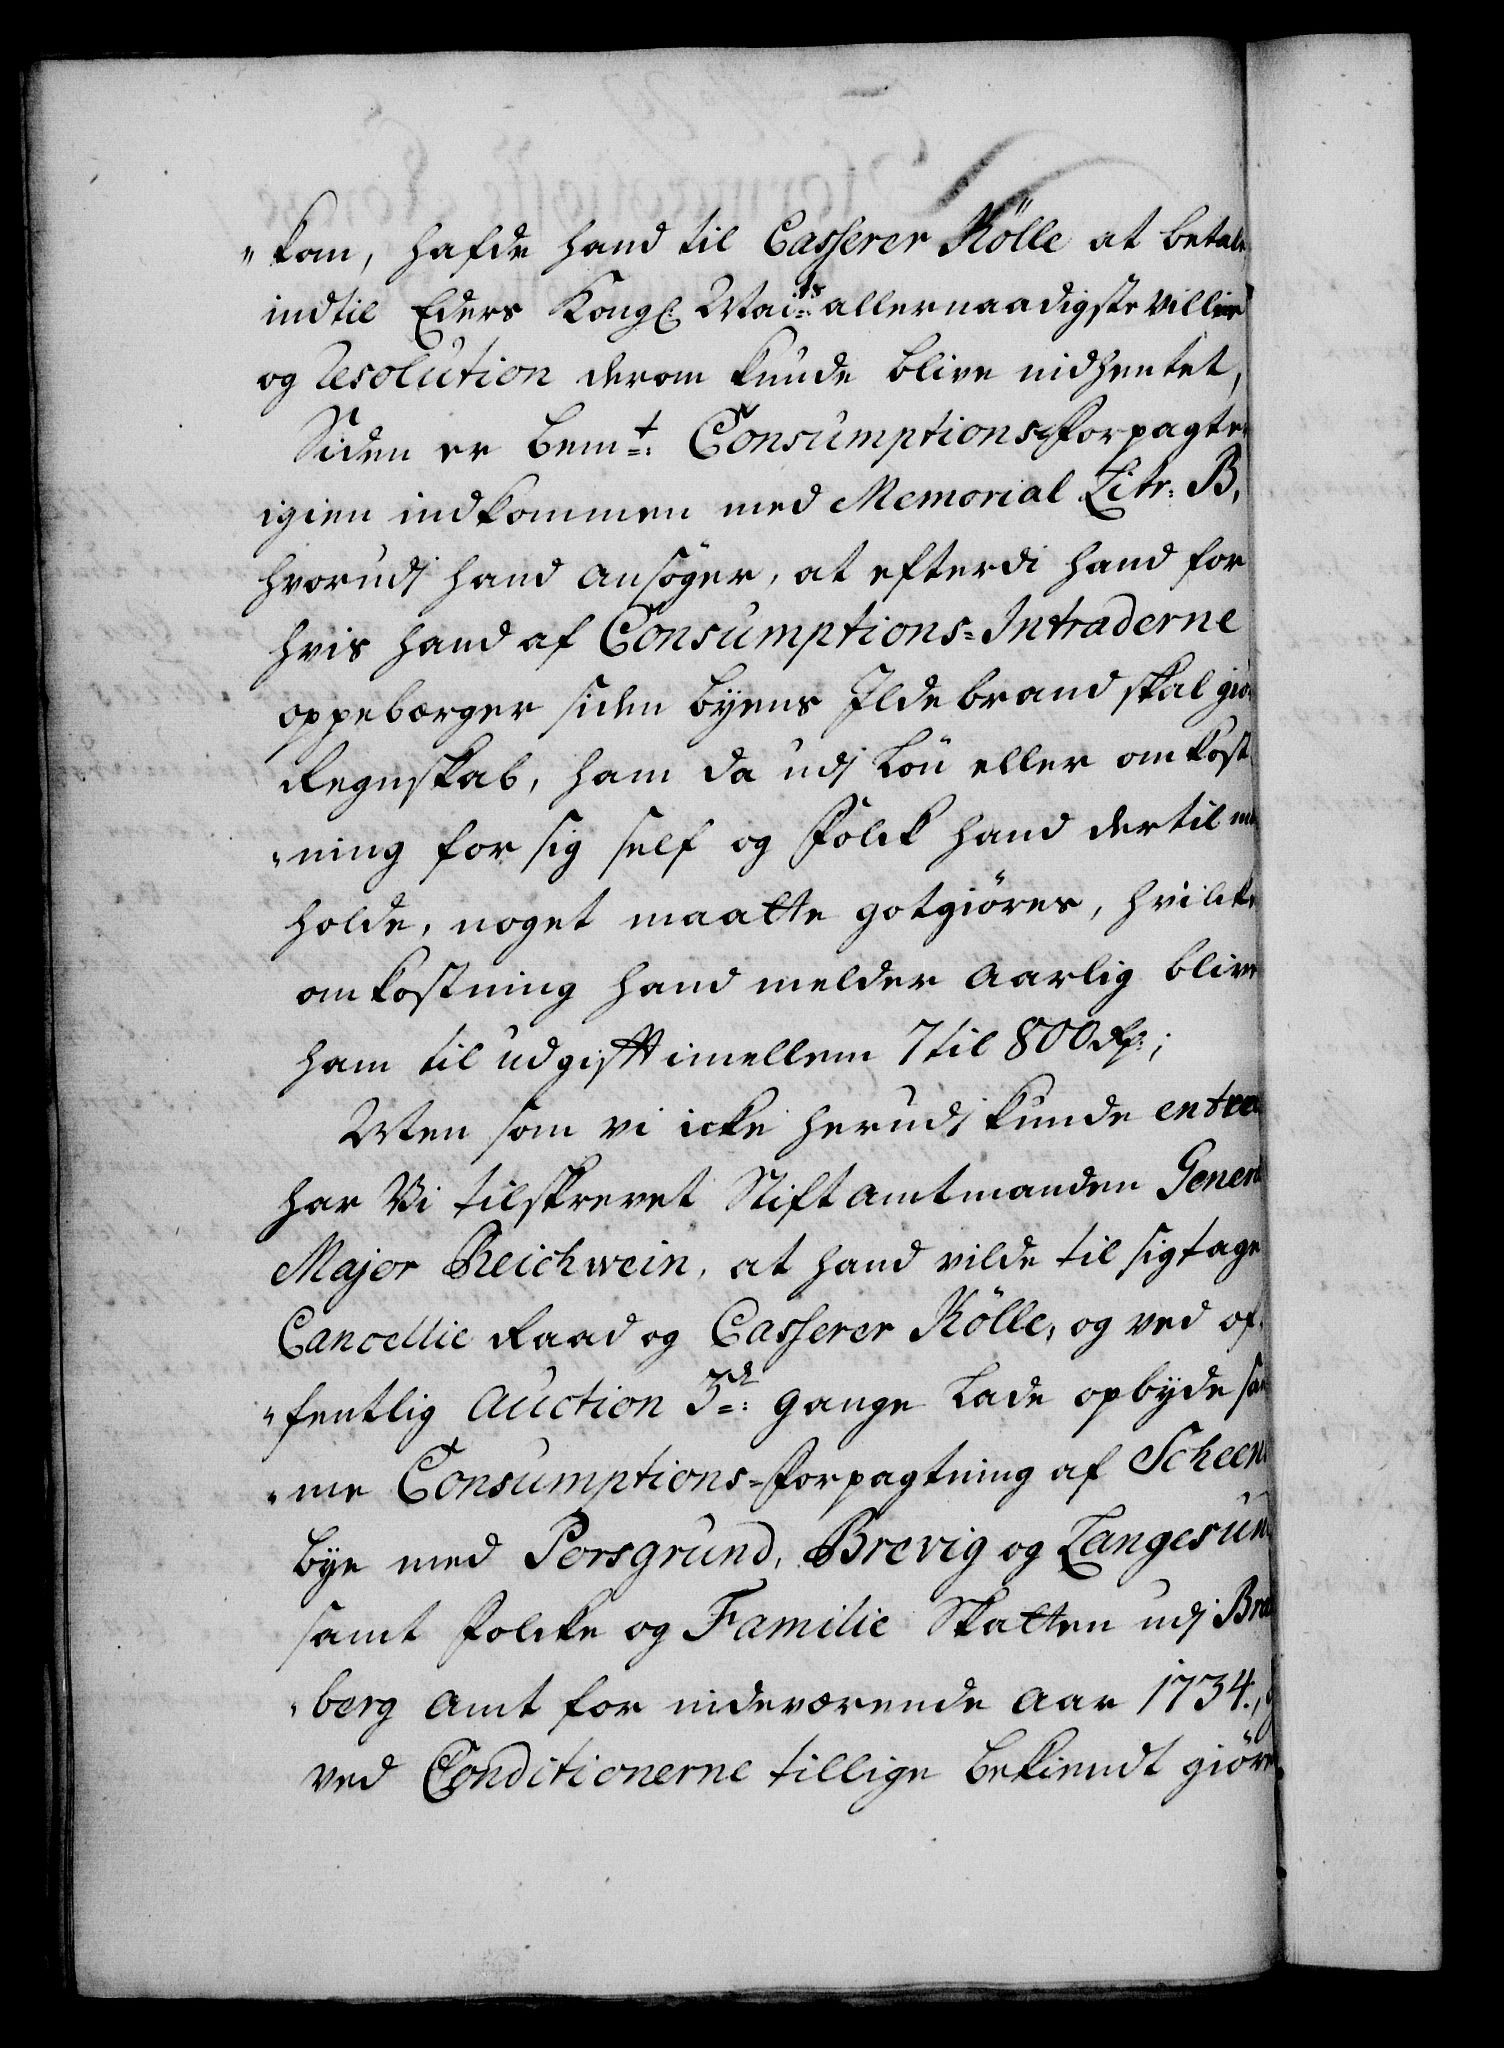 "kom, hafde hand til Casserer Kölle at betale
indtil Eders Kongl: Mai:ts allernaadigste villie
og Resolution derom kunde blive indhentet,
Siden er bem:t Consumptions-Forpagter
igien indkommen med Memorial Litr: B,
hvorudj hand ansöger, at efterdi hand for
hvis hand af Consumptions-Intraderne
oppebærger siden byens Ildebrand skal giö
Regnskab, ham da udj Lön eller omkost
"ning for sig self og Folck hand dertil
holde, noget maatte gotgiöres, hvilcke
omkostning hand melder aarlig blive
ham til udgifft imellem 7 til 800 Rd:;
Men som vi icke herudj kunde entre
har Vi tilskrevet Stiftamtmanden General
Major Reichwein, at hand vilde til sig tage
Cancellie Raad og Casserer Kölle, og ved of-
"fentlig Auction 3de: gange lade opbyde sam
"me Consumptions-Forpagtning af Scheens
bye med Porsgrund, Brevig og Langesund
samt Folcke og Familie Skatten udj Brat
"berg amt for indeværende Aar 1734.,
ved Conditionerne tillige bekiendt giöre